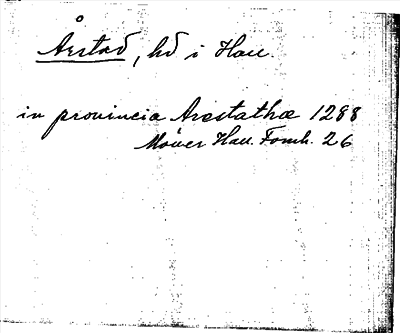 Årstad, hd i Hall.
in provincia Arestathæ 1288
Möller Hall. Fornh. 26